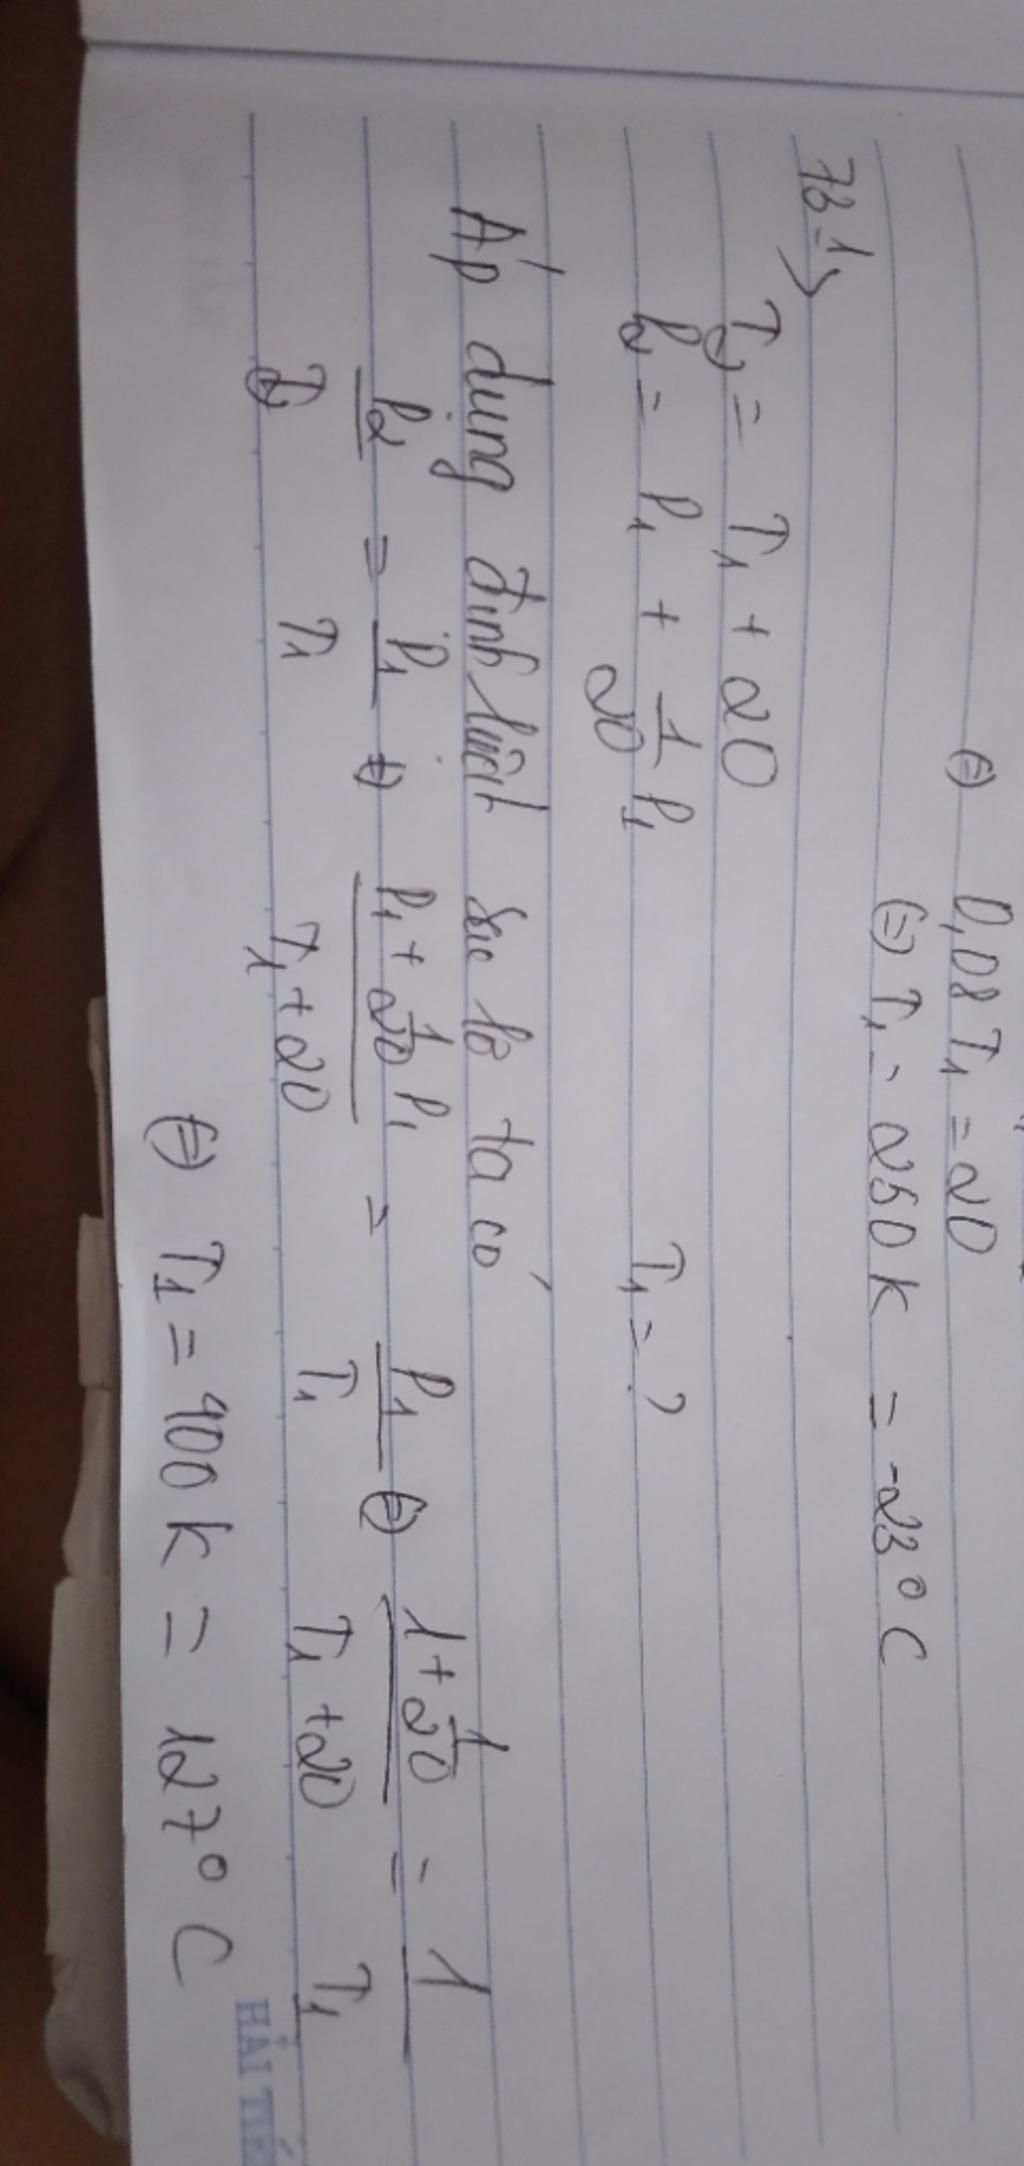 ⇔ 0,08 T₁ = 20
⇔ T₁ = 250 K = -23°C
7B.1)
T₂ = T₁ + 20
P₂ = P₁ + 1/20 P₁ T₁ = ?
Áp dụng định luật Sác lơ ta có
P₂/T₂ = P₁/T₁ ⇔ (P₁ + 1/20 P₁)/(T₁ + 20) = P₁/T₁ ⇔ (1 + 1/20)/(T₁ + 20) = 1/T₁
⇔ T₁ = 400 K = 127°C
HẢI TIẾ